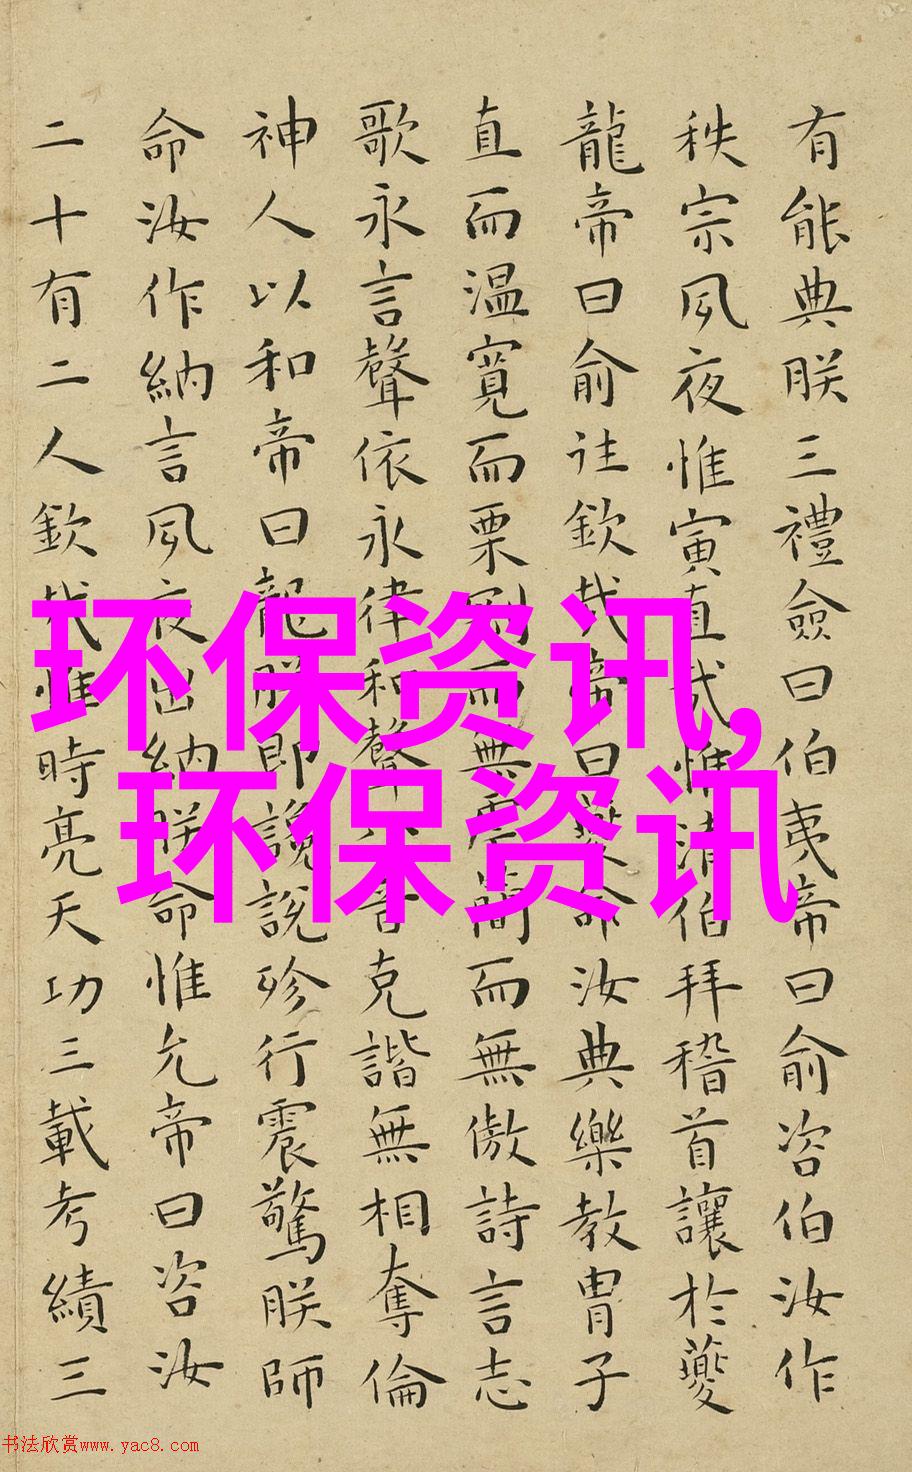 有能典朕三禮僉曰伯夷帝曰俞咨伯汝作
秩宗夙夜惟寅直哉惟清伯拜稽首讓於夔
龍帝曰俞往欽哉帝曰夔命汝典樂教胄子
直而温寬而栗剛而無虐簡而無傲詩言志
歌永言聲依永律和聲八音克諧無相奪倫
神人以和帝曰龍朕即讒說殄行震驚朕師
命汝作納言夙夜出納朕命惟允帝曰咨汝
二十有二人欽哉惟時亮天功三載考績三
环保资讯,
环保资讯
书法欣赏www.yac8.com